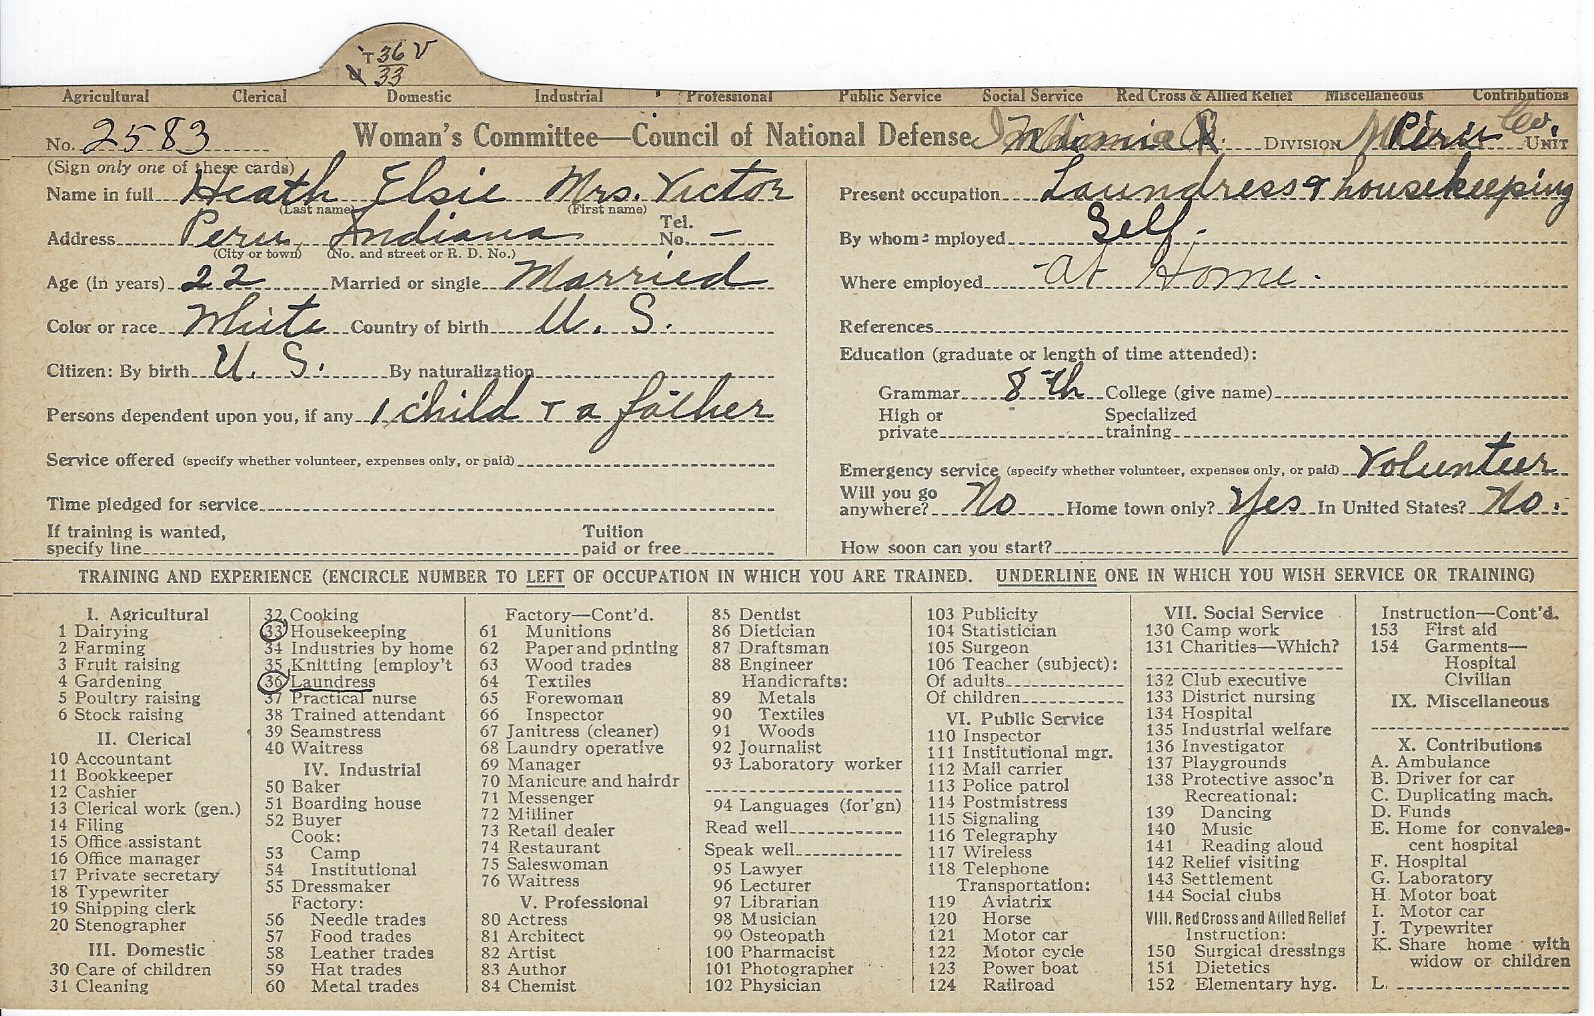 T 36 V
33
Agricultural Clerical Domestic Industrial Professional Public Service Social Service Red Cross & Allied Relief Miscellaneous Contributions
No. 2583 Woman's Committee—Council of National Defense DIVISION Peru Co. UNIT
(Sign only one of these cards)
Name in full Heath Elsie Mrs. Victor
(Last name) (First name)
Address Peru, Indiana Tel. No. —
(City or town) (No. and street or R. D. No.)
Age (in years) 22 Married or single Married
Color or race White Country of birth U. S.
Citizen: By birth U. S. By naturalization
Persons dependent upon you, if any 1 child + a father
Service offered (specify whether volunteer, expenses only, or paid)
Time pledged for service
If training is wanted, specify line Tuition paid or free
Present occupation Laundress & housekeeping
By whom employed Self.
Where employed at Home.
References
Education (graduate or length of time attended):
Grammar 8th College (give name)
High or private Specialized training
Emergency service (specify whether volunteer, expenses only, or paid) Volunteer
Will you go anywhere? No Home town only? Yes In United States? No.
How soon can you start?
TRAINING AND EXPERIENCE (ENCIRCLE NUMBER TO LEFT OF OCCUPATION IN WHICH YOU ARE TRAINED. UNDERLINE ONE IN WHICH YOU WISH SERVICE OR TRAINING)
I. Agricultural
1 Dairying
2 Farming
3 Fruit raising
4 Gardening
5 Poultry raising
6 Stock raising
II. Clerical
10 Accountant
11 Bookkeeper
12 Cashier
13 Clerical work (gen.)
14 Filing
15 Office assistant
16 Office manager
17 Private secretary
18 Typewriter
19 Shipping clerk
20 Stenographer
III. Domestic
30 Care of children
31 Cleaning
32 Cooking
33 Housekeeping
34 Industries by home
35 Knitting [employ't
36 Laundress
37 Practical nurse
38 Trained attendant
39 Seamstress
40 Waitress
IV. Industrial
50 Baker
51 Boarding house
52 Buyer
Cook:
53 Camp
54 Institutional
55 Dressmaker
Factory:
56 Needle trades
57 Food trades
58 Leather trades
59 Hat trades
60 Metal trades
Factory—Cont'd.
61 Munitions
62 Paper and printing
63 Wood trades
64 Textiles
65 Forewoman
66 Inspector
67 Janitress (cleaner)
68 Laundry operative
69 Manager
70 Manicure and hairdr
71 Messenger
72 Milliner
73 Retail dealer
74 Restaurant
75 Saleswoman
76 Waitress
V. Professional
80 Actress
81 Architect
82 Artist
83 Author
84 Chemist
85 Dentist
86 Dietician
87 Draftsman
88 Engineer
Handicrafts:
89 Metals
90 Textiles
91 Woods
92 Journalist
93 Laboratory worker
94 Languages (for'gn)
Read well
Speak well
95 Lawyer
96 Lecturer
97 Librarian
98 Musician
99 Osteopath
100 Pharmacist
101 Photographer
102 Physician
103 Publicity
104 Statistician
105 Surgeon
106 Teacher (subject):
Of adults
Of children
VI. Public Service
110 Inspector
111 Institutional mgr.
112 Mail carrier
113 Police patrol
114 Postmistress
115 Signaling
116 Telegraphy
117 Wireless
118 Telephone
Transportation:
119 Aviatrix
120 Horse
121 Motor car
122 Motor cycle
123 Power boat
124 Railroad
VII. Social Service
130 Camp work
131 Charities—Which?
132 Club executive
133 District nursing
134 Hospital
135 Industrial welfare
136 Investigator
137 Playgrounds
138 Protective assoc'n
Recreational:
139 Dancing
140 Music
141 Reading aloud
142 Relief visiting
143 Settlement
144 Social clubs
VIII. Red Cross and Allied Relief
Instruction:
150 Surgical dressings
151 Dietetics
152 Elementary hyg.
Instruction—Cont'd.
153 First aid
154 Garments—
Hospital
Civilian
IX. Miscellaneous
X. Contributions
A. Ambulance
B. Driver for car
C. Duplicating mach.
D. Funds
E. Home for convales-
cent hospital
F. Hospital
G. Laboratory
H. Motor boat
I. Motor car
J. Typewriter
K. Share home with
widow or children
L.